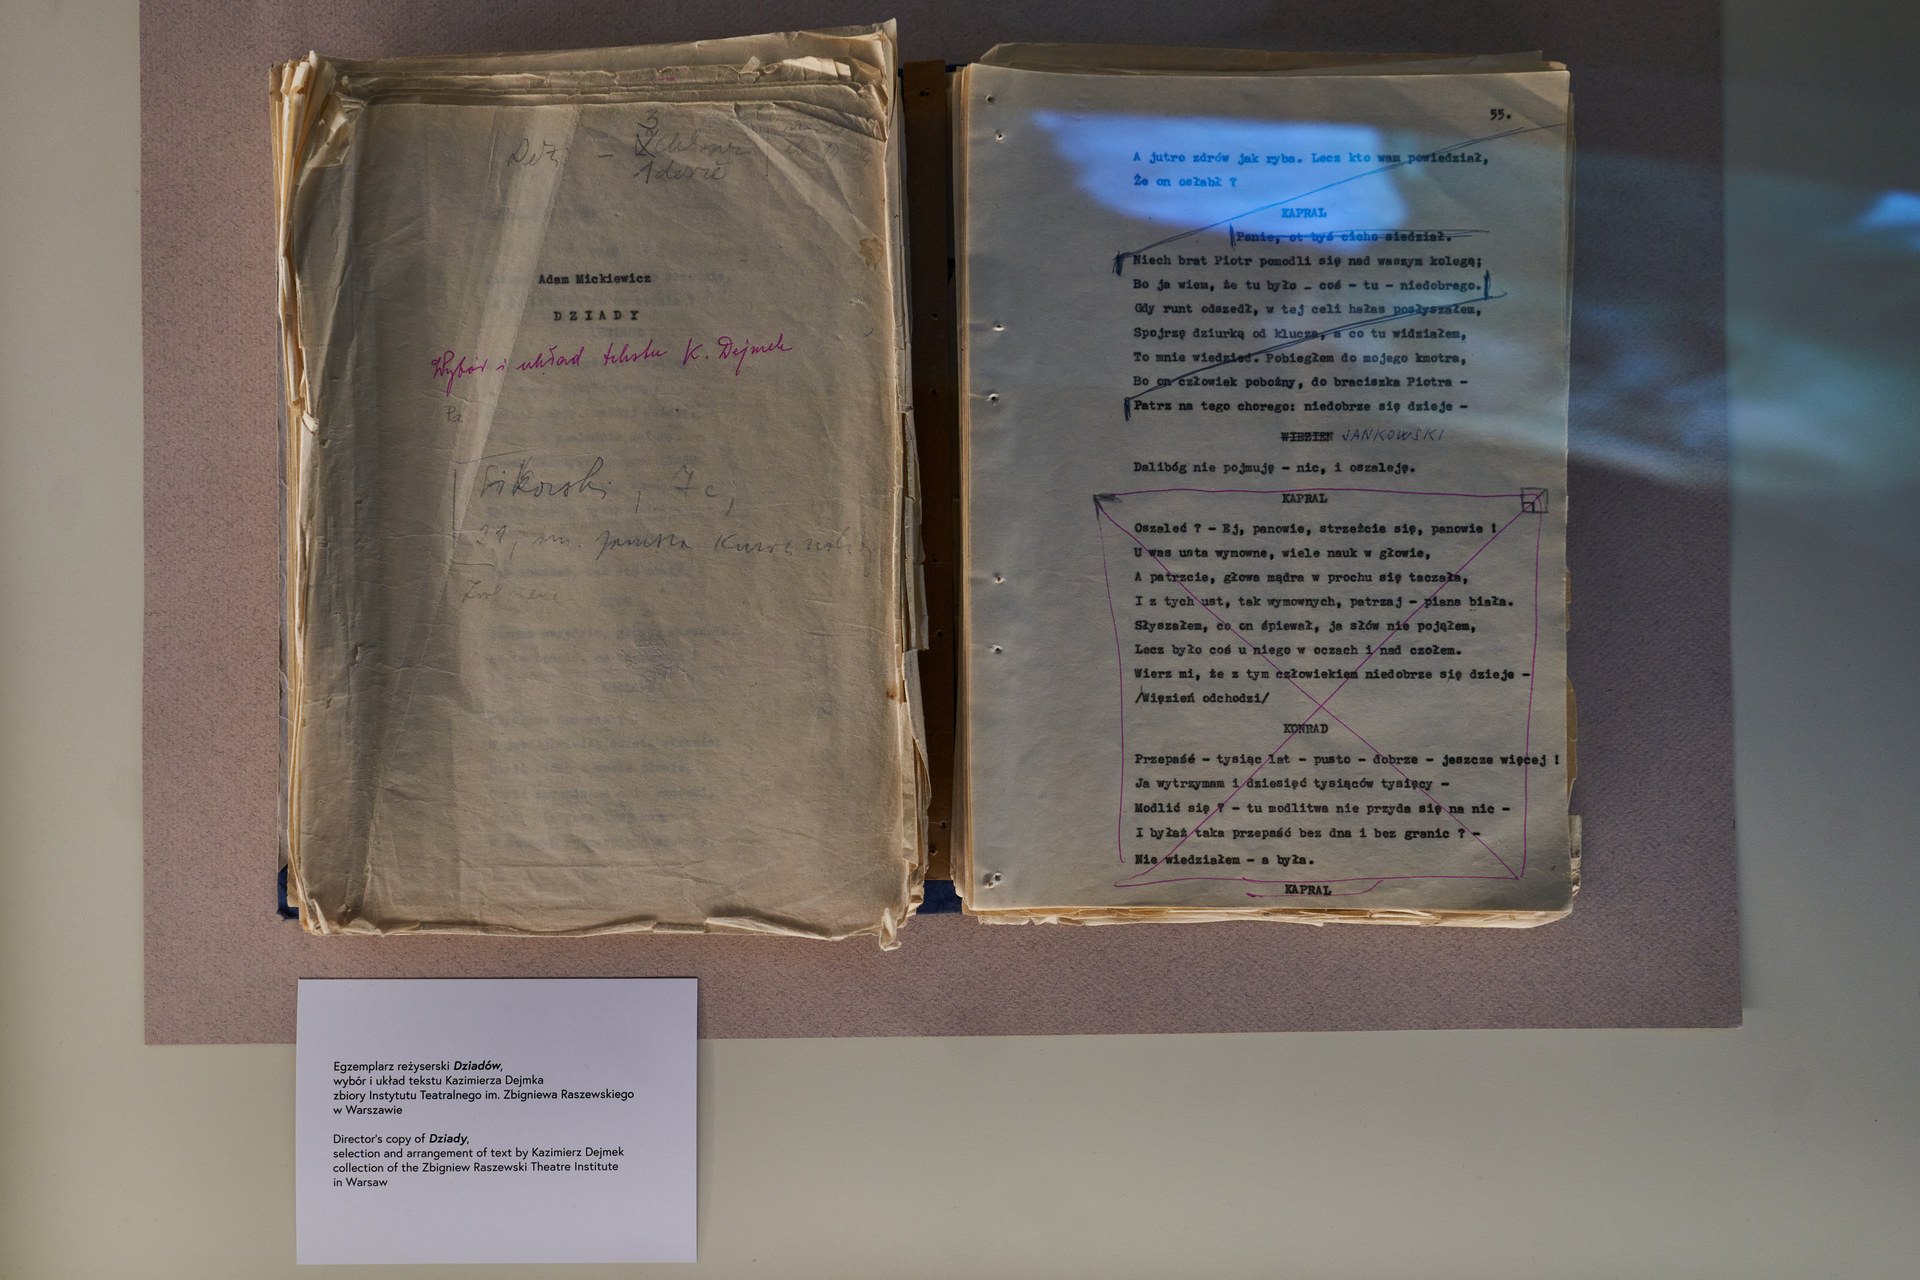 3
1
Adam Mickiewicz
DZIADY
Wybór i układ tekstu K. Dejmek
Pa
Sikorski, 7c,
55.
A jutro zdrów jak ryba. Lecz kto wam powiedział,
Że on osłabł ?
KAPRAL
Panie, ot byś cicho siedział.
Niech brat Piotr pomodli się nad waszym kolegą;
Bo ja wiem, że tu było – coś – tu – niedobrego.
Gdy runt odszedł, w tej celi hałas posłyszałem,
Spojrzę dziurką od klucza, a co tu widziałem,
To mnie wiedzieć. Pobiegłem do mojego kmotra,
Bo on człowiek pobożny, do braciszka Piotra –
Patrz na tego chorego: niedobrze się dzieje –
WIĘZIEŃ JANKOWSKI
Dalibóg nie pojmuję – nic, i oszaleję.
KAPRAL
Oszaleć ? – Ej, panowie, strzeżcie się, panowie !
U was usta wymowne, wiele nauk w głowie,
A patrzcie, głowa mądra w prochu się taczała,
I z tych ust, tak wymownych, patrzaj – piana biała.
Słyszałem, co on śpiewał, ja słów nie pojąłem,
Lecz było coś u niego w oczach i nad czołem.
Wierz mi, że z tym człowiekiem niedobrze się dzieje –
/Więzień odchodzi/
KONRAD
Przepaść – tysiąc lat – pusto – dobrze – jeszcze więcej !
Ja wytrzymam i dziesięć tysiąców tysięcy –
Modlić się ? – tu modlitwa nie przyda się na nic –
I byłaż taka przepaść bez dna i bez granic ? –
Nie wiedziałem – a była.
KAPRAL
Egzemplarz reżyserski Dziadów,
wybór i układ tekstu Kazimierza Dejmka
zbiory Instytutu Teatralnego im. Zbigniewa Raszewskiego
w Warszawie
Director's copy of Dziady,
selection and arrangement of text by Kazimierz Dejmek
collection of the Zbigniew Raszewski Theatre Institute
in Warsaw